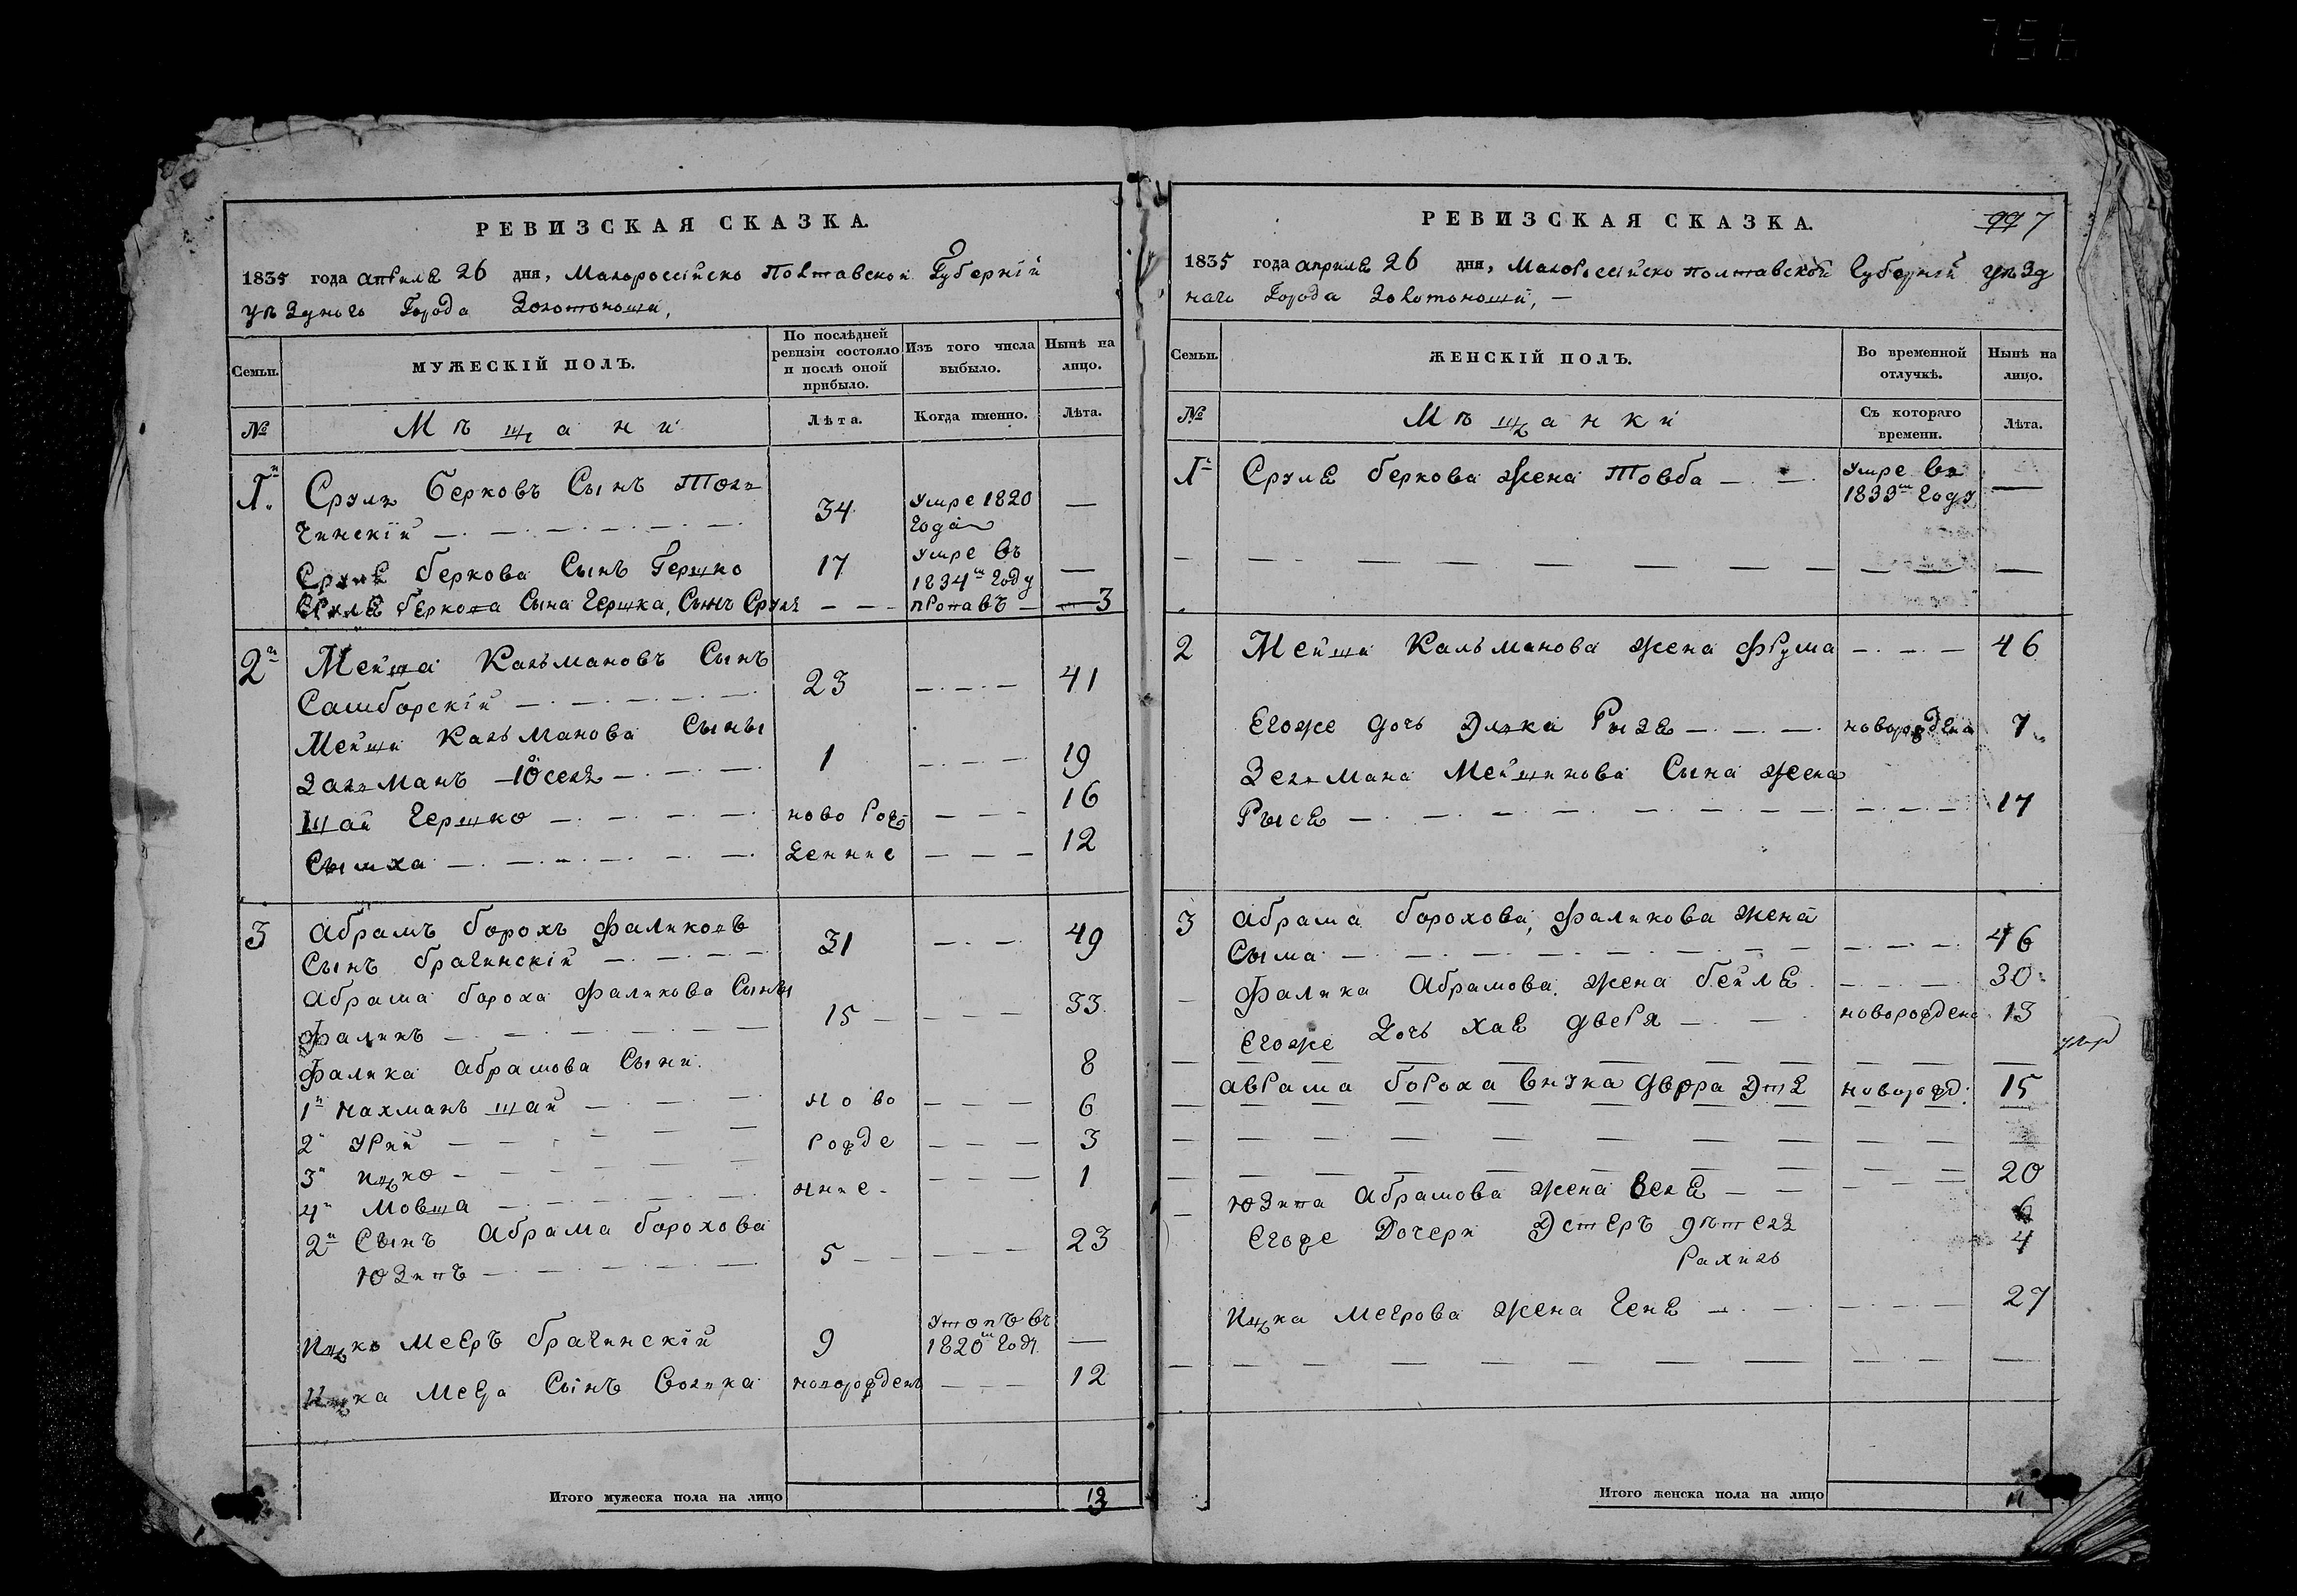 РЕВИЗСКАЯ СКАЗКА.
1835 года апреля 26 дня, Малороссійско Полтавской Губерніи
уѣзднаго Города Золотоноши,
Семьи.
МУЖЕСКІЙ ПОЛЪ.
По послѣдней ревизіи состояло и послѣ оной прибыло.
Изъ того числа выбыло.
Нынѣ на лицо.
№
Мѣщани
Лѣта.
Когда именно.
Лѣта.
1й Сруль Берковъ Сынъ Толь
чинскій 34 Умре 1820 года —
Сруля беркова Сынъ Гершко 17 Умре въ 1834м году —
Сруля беркова Сына Гершка, Сынъ Сруль — 3
2й Мейша Кальмановъ Сынъ
Самборскій 23 — 41
Мейши Кальманова Сыны
Залманъ Іосель 1 — 19
Шай Гершко ново рож — 16
Сымха денние — 12
3 Абрамъ борохъ фаликовъ
Сынъ брагинскій 31 — 49
Абрама бороха фаликова Сыны
фаликъ 15 — 33
Фалика абрамова Сыни.
1й Нахманъ шай ново — 8
2й Урій рожде — 6
3й Ицко — 3
4й Мовша ние — 1
2й Сынъ Абрама борохова
Юзипъ 5 — 23
Ицко Мееръ брагинскій 9 Утопъ въ 1820м году —
Ицка Меера Сынъ Волька новорожденъ — 12
Итого мужеска пола на лицо
РЕВИЗСКАЯ СКАЗКА.
7
1835 года апреля 26 дня, Малоросійско полтавской губерніи уѣзд
наго Города Золотоноши, —
Семьи.
ЖЕНСКІЙ ПОЛЪ.
Во временной отлучкѣ.
Нынѣ на лицо.
№
Мѣщанки
Съ котораго времени.
Лѣта.
1й Сруля беркова жена Товба умре въ 1833м году —
2 Мейши Кальманова жена Фрума — 46
Егоже дочь Элька Рызя новорождена 7
Зельмана Мейшинова Сына жена
Рыся — 17
3 абрама борохова, фаликова жена
Сыма — 46
Фалика Абрамова жена бейля — 30
Егоже дочь хая дверя новорождена 13
аврама бороха внучка двора Этя новорожд: 15
Юзипа Абрамова жена Веля — 20
Егоже Дочери Эстеръ 6
Рахиль 4
Ицка меерова жена Геня — 27
Итого женска пола на лицо 11